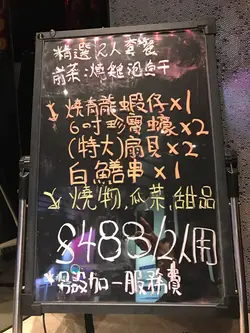 精選2人套餐
前菜:燒雞泡魚干
燒青龍蝦仔×1
6吋珍寶蠔×2
(特大)扇貝×2
白鱔串×1
燒物,瓜菜,甜品
$488/2人用
*另設加一服務費